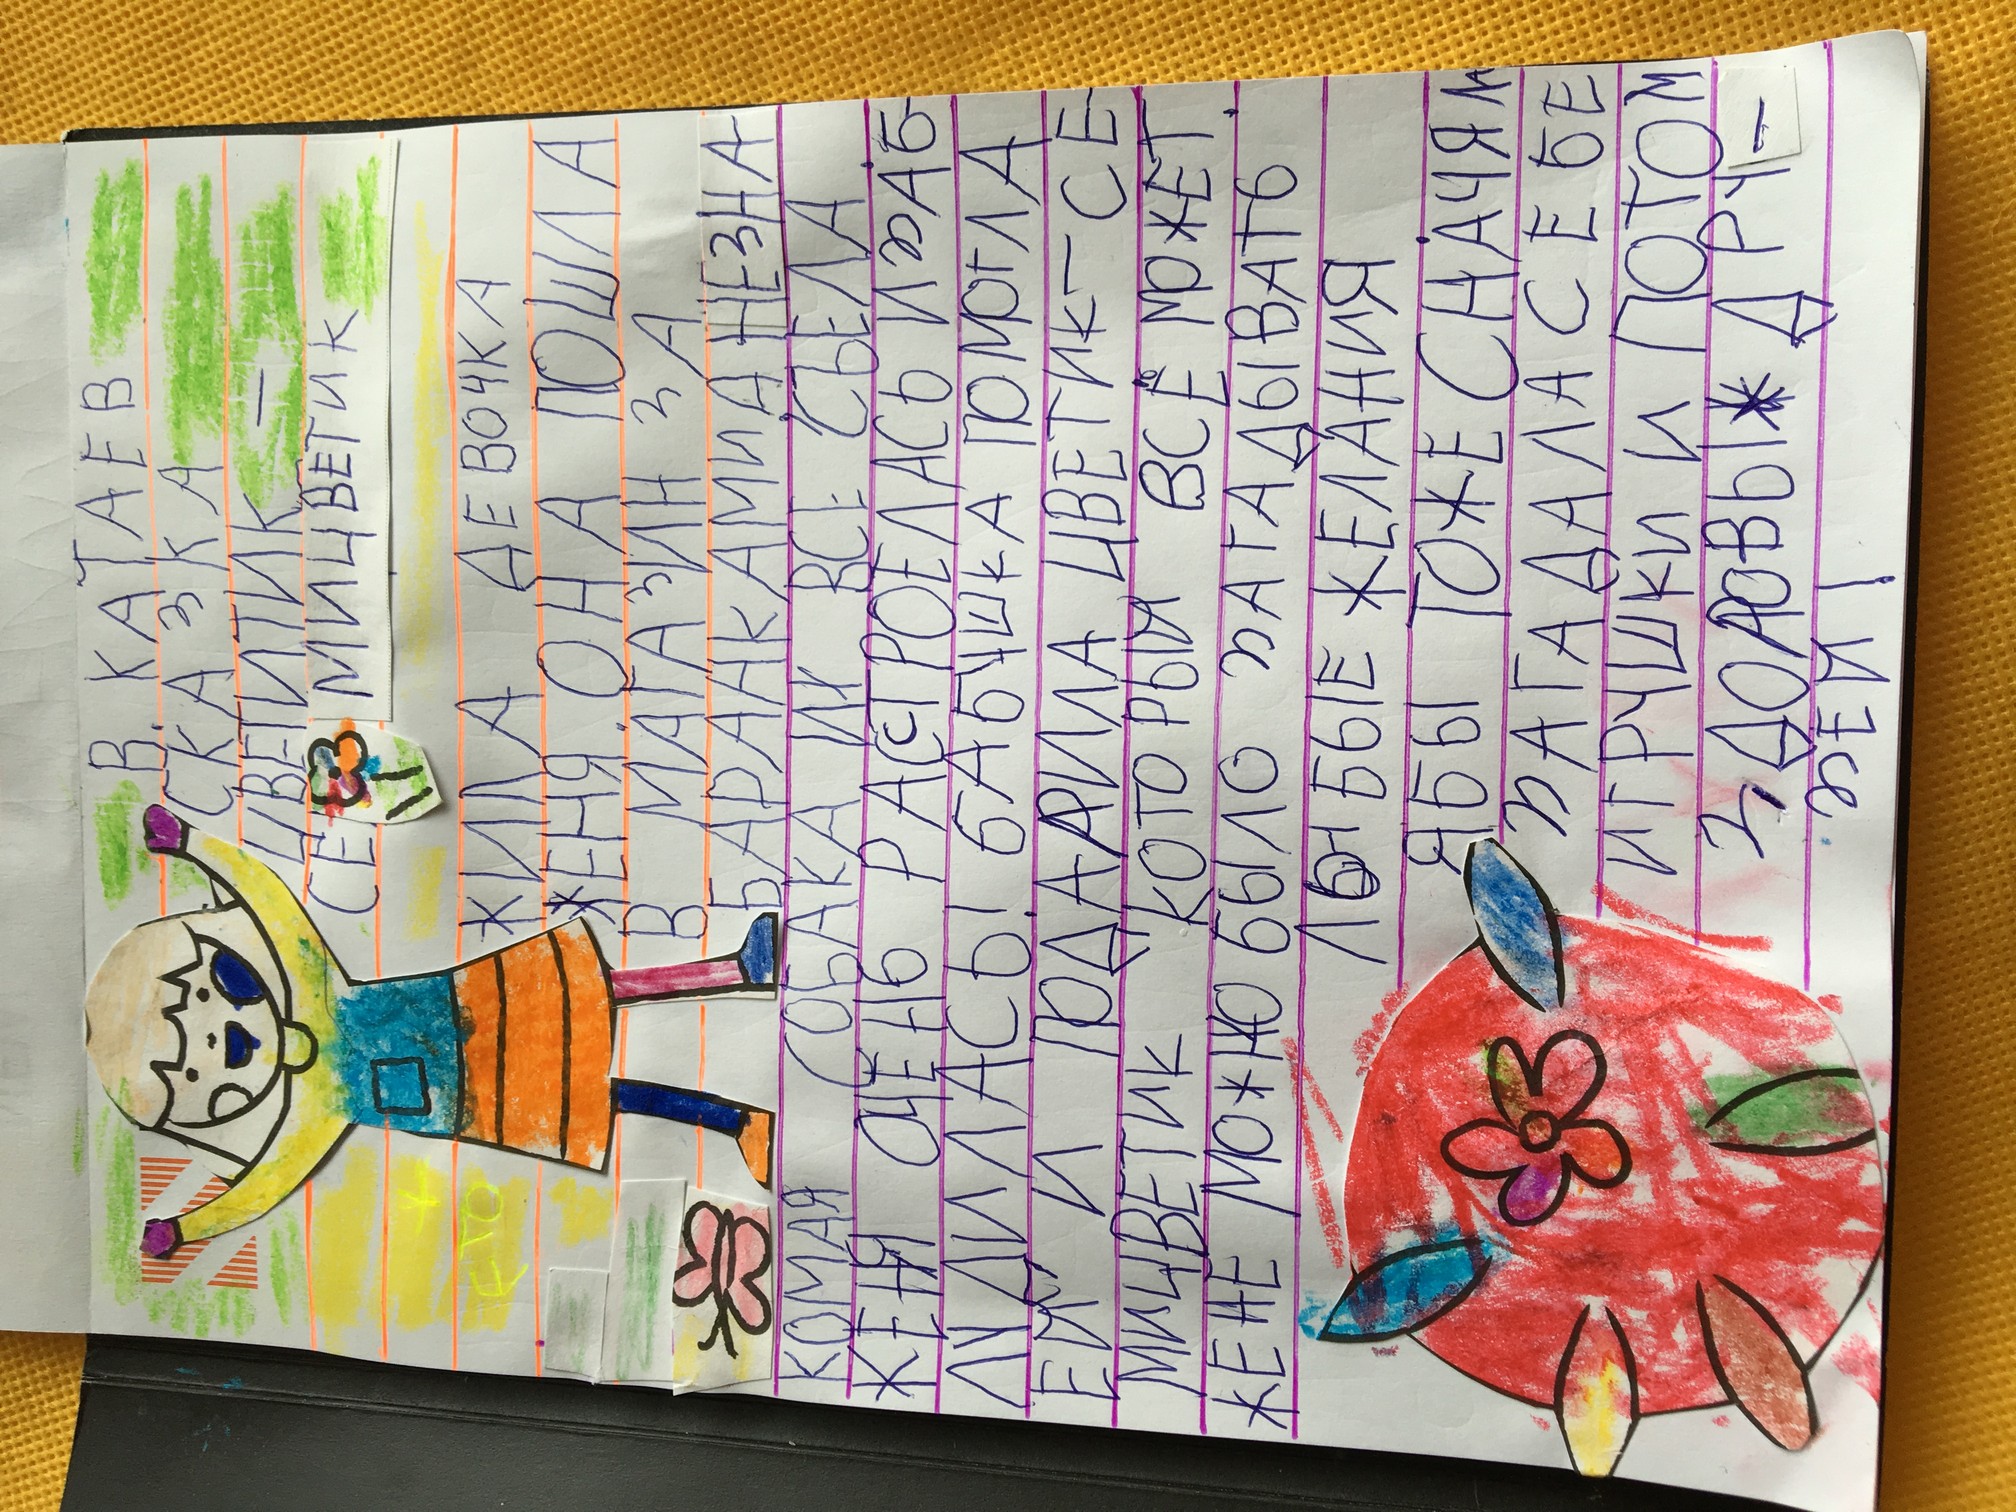 В КАТАЕВ
СКАЗКА
ЦВЕТИК -
СЕМИЦВЕТИК
ЖИЛА ДЕВОЧКА
ЖЕНЯ. ОНА ПОШЛА
В МАГАЗИН ЗА
БАРАНКАМИ А НЕЗНА
КОМАЯ СОБАКА ИХ ВСЕ СЬЕЛА
ЖЕНЯ ОЧЕНЬ РАСТРОЕЛАСЬ И ЗАБ
ЛУДИЛАСЬ! БАБУШКА ПОМОГЛА
ЕЙ И ПОДАРИЛА ЦВЕТИК-СЕ-
МИЦВЕТИК КОТОРЫЙ ВСЁ МОЖЕТ.
ЖЕНЕ МОЖНО БЫЛО ЗАГАДЫВАТЬ
ЛЬУБЫЕ ЖЕЛАНИЯ
ЯБЫ ТОЖЕ СНАЧЯЛ
ЗАГАДАЛА СЕБЕ
ИГРУШКИ И ПОТОМ
ЗДОРОВЫХ ДРУ-
ЗЕЙ!
ЕТО